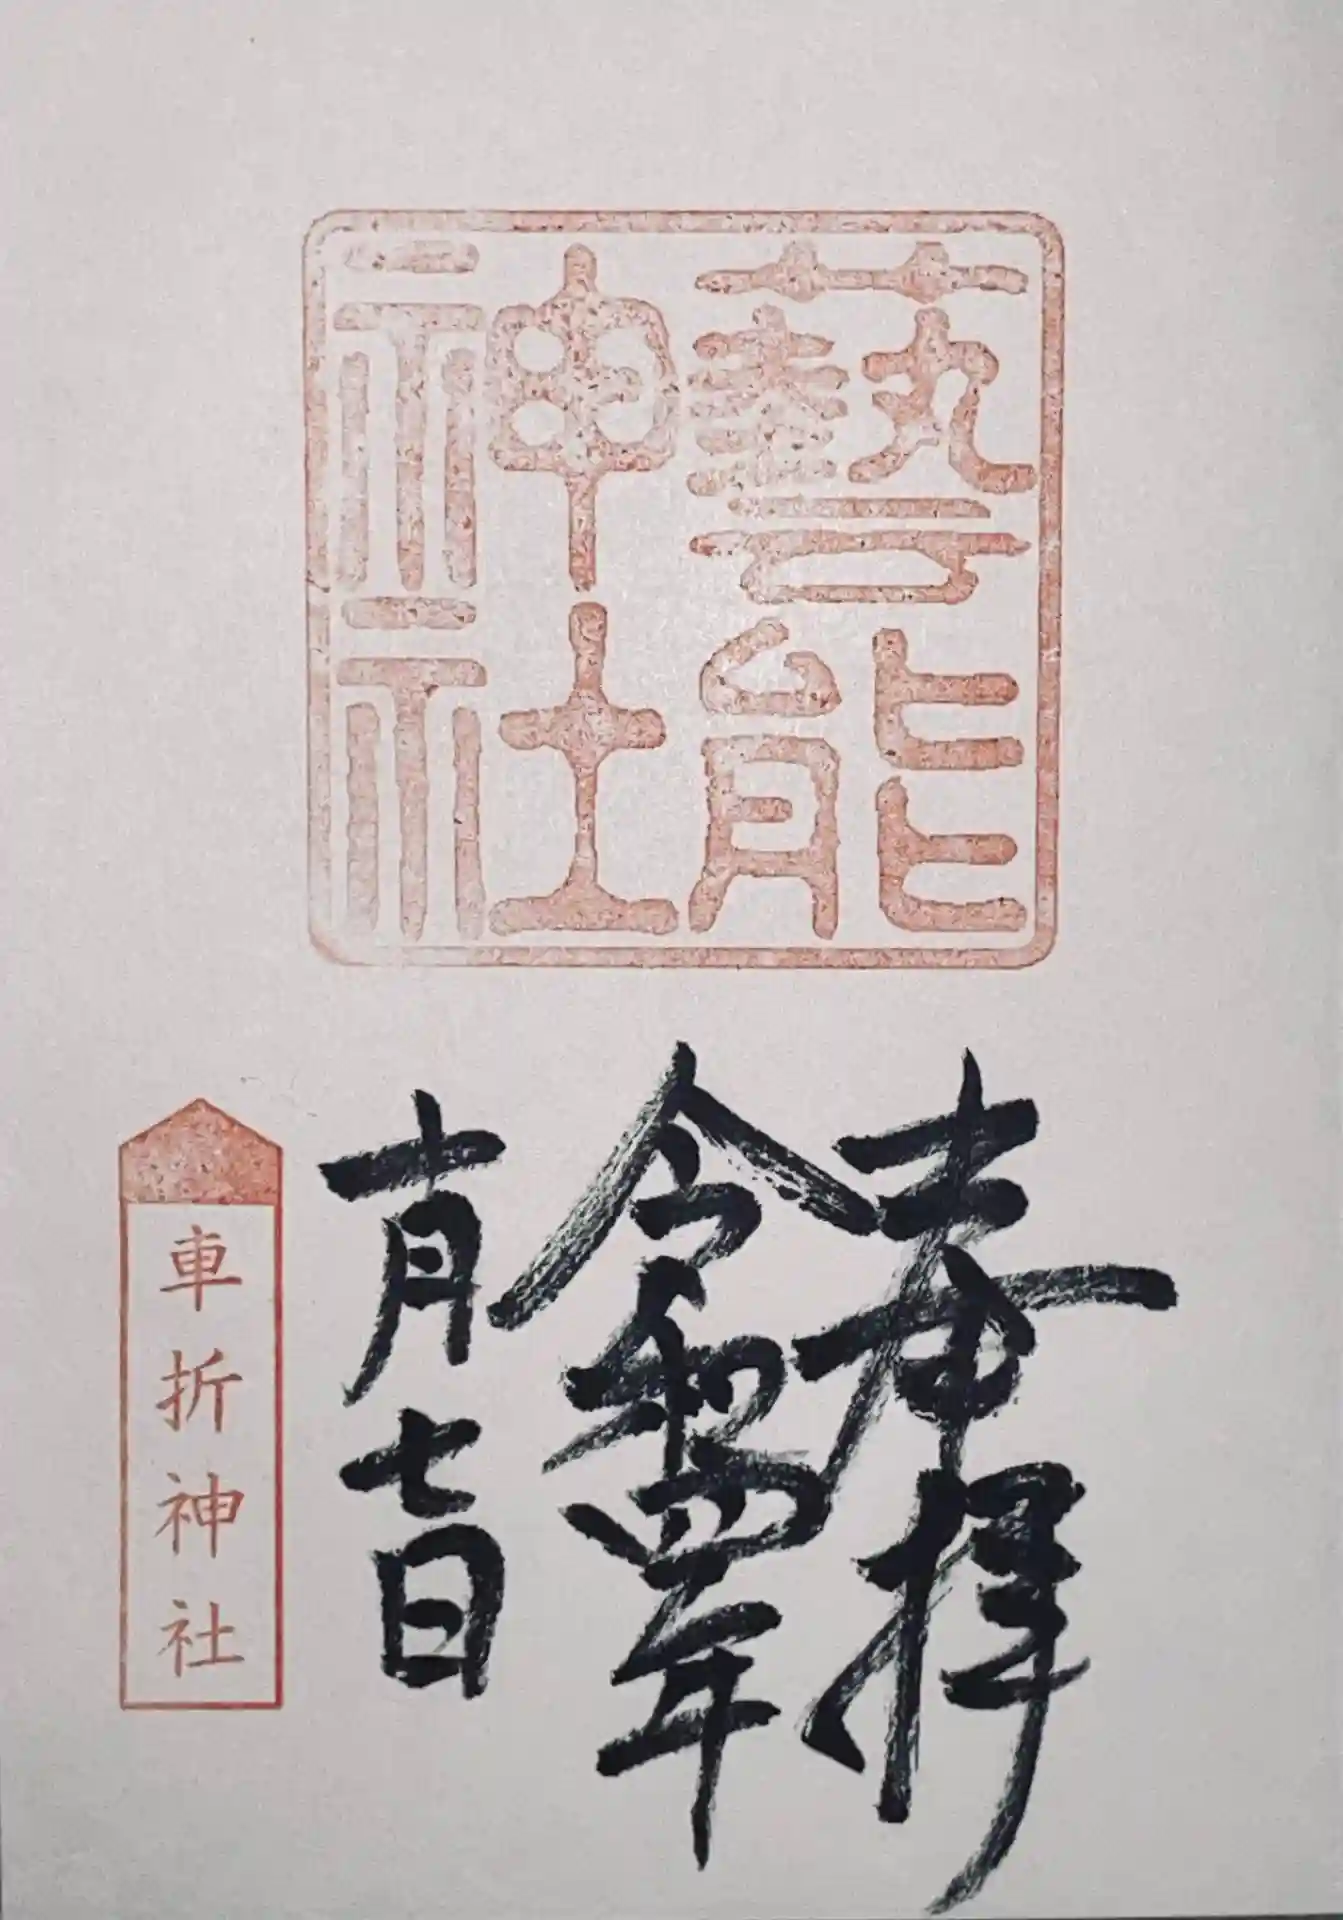 藝能
神社
奉拝
令和四年
十月七日
車折神社